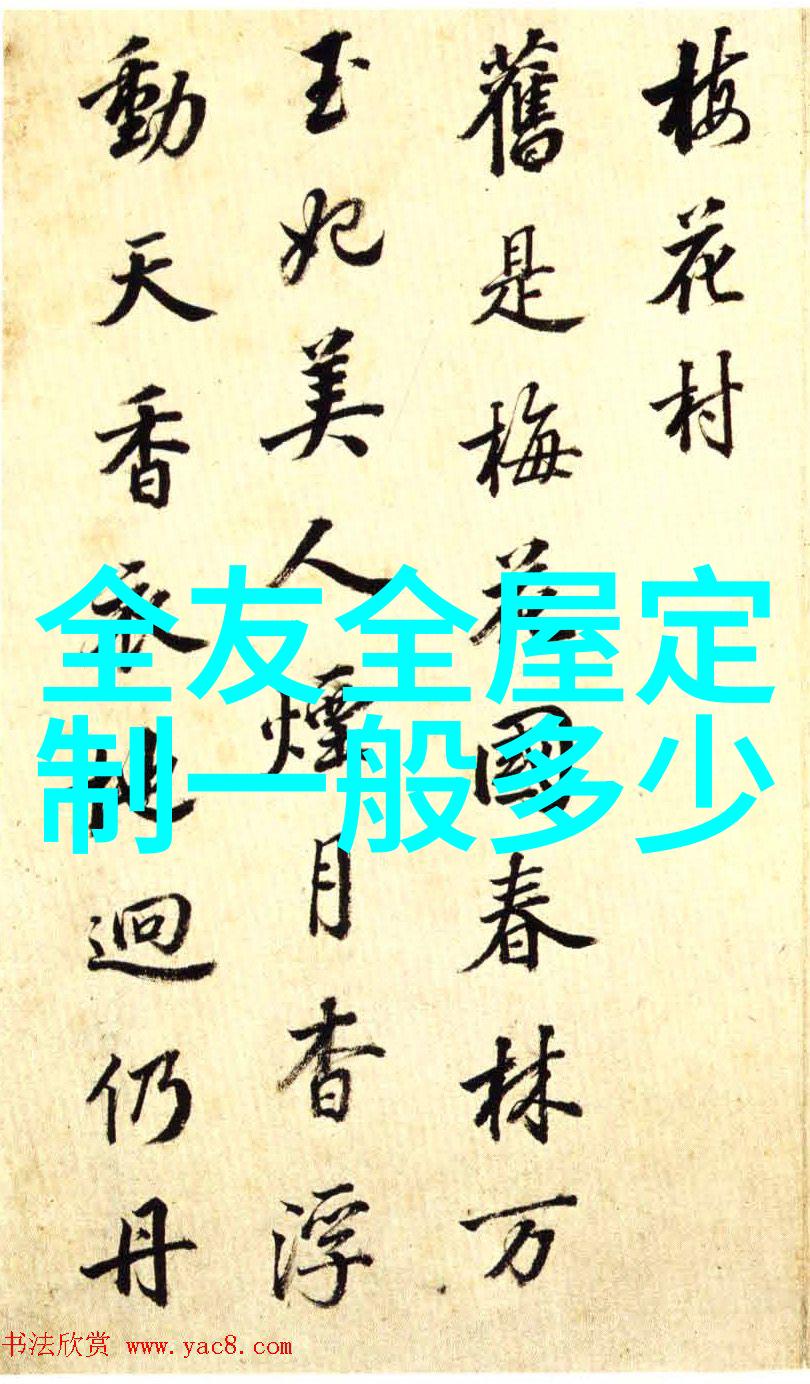 梅花村
舊是梅花國春林万
玉妃美人煙月杳浮
動天香衣地迥仍丹
全友全屋定
制一般多少
书法欣赏 www.yac8.com